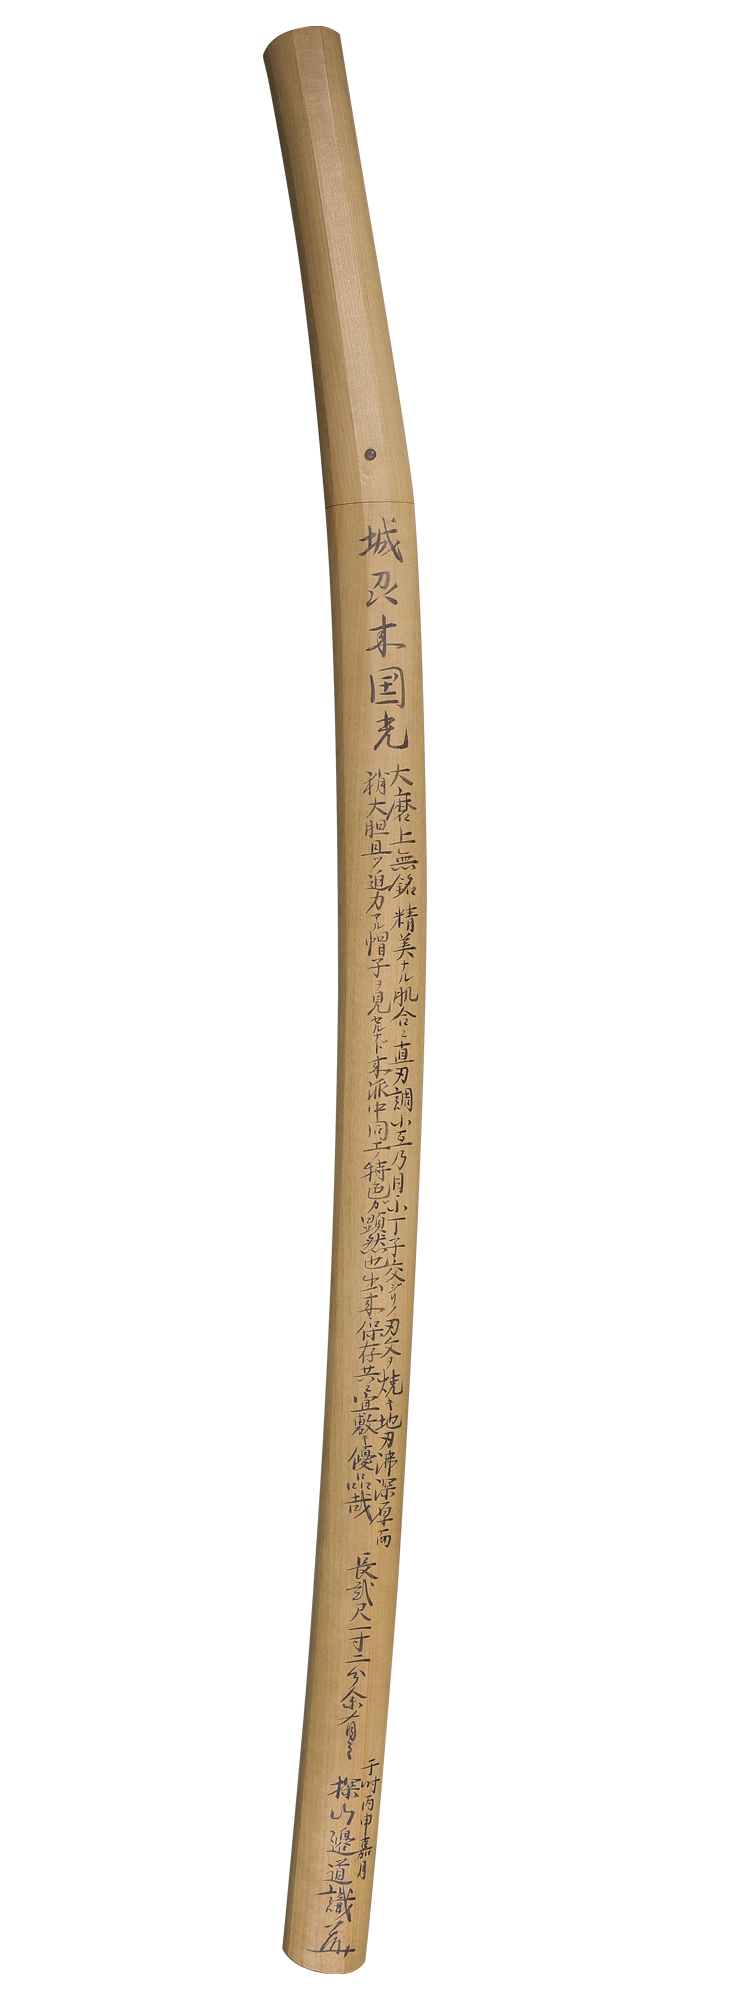 城刕来国光
大磨上無銘 精美ナル肌合ニ直刃調小互乃目小丁子交ジリノ刃文ヲ焼キ地刃沸深厚而
稍大胆且ツ迫力アル帽子ヲ見セルナド来派中同工ノ特色ガ顕然也出来保存共ニ宜敷キ優品哉
長弐尺一寸二分余有之
于時丙申嘉月
探山邉道識